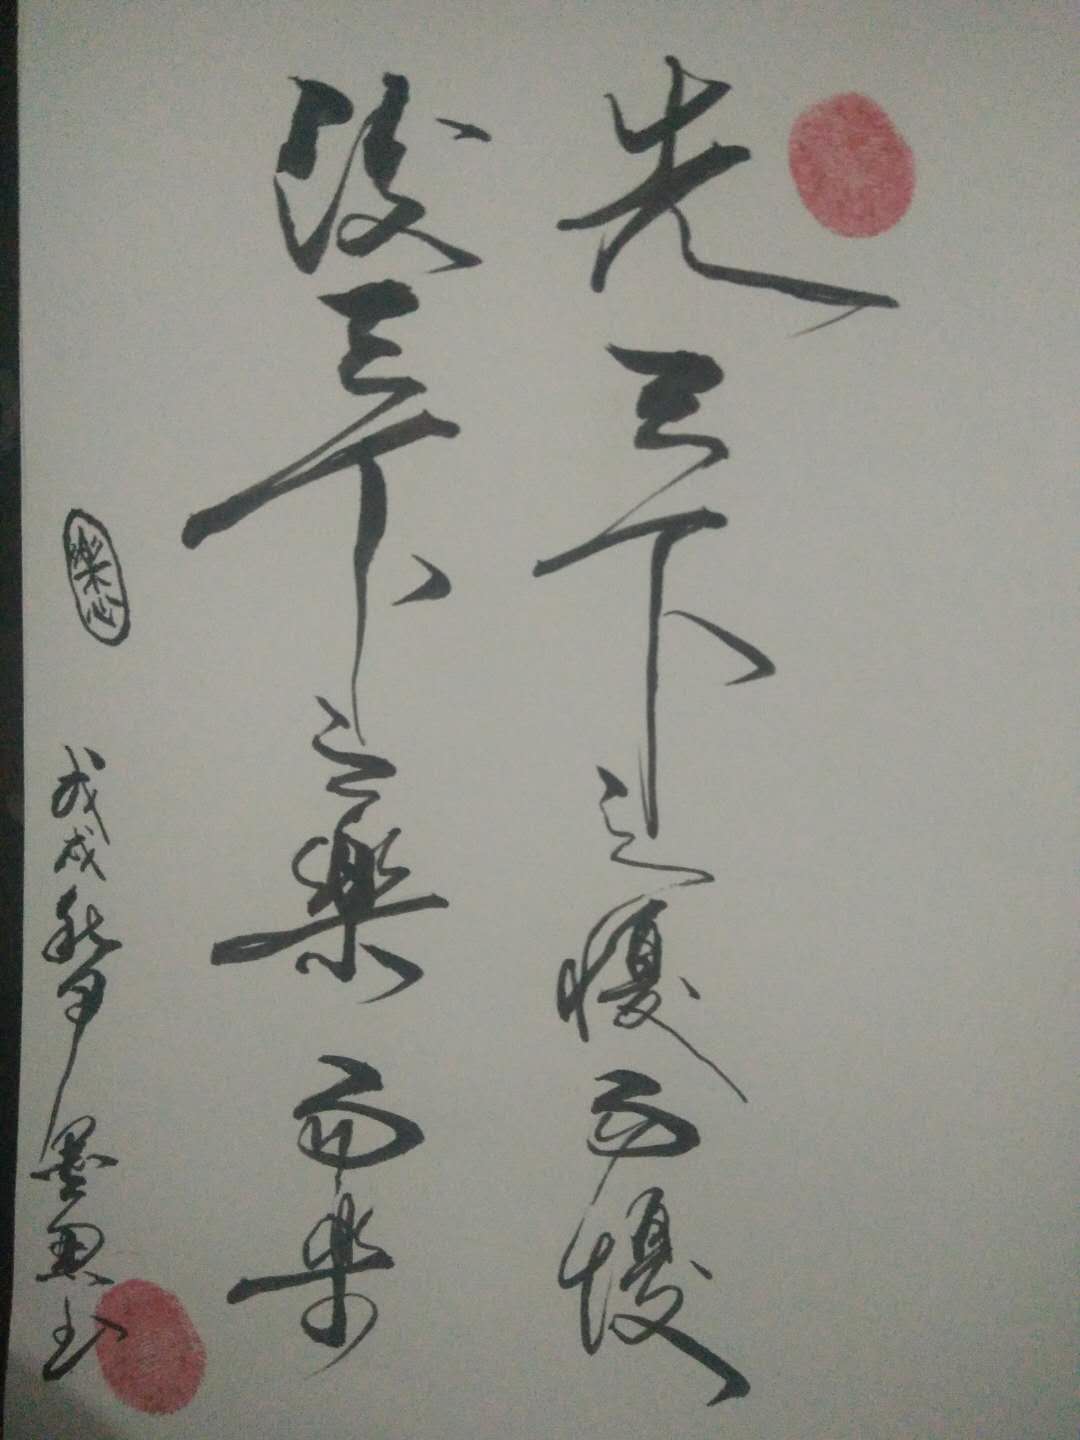 先天下之懮而懮
後天下之樂而樂
樂心
戊戌秋月墨